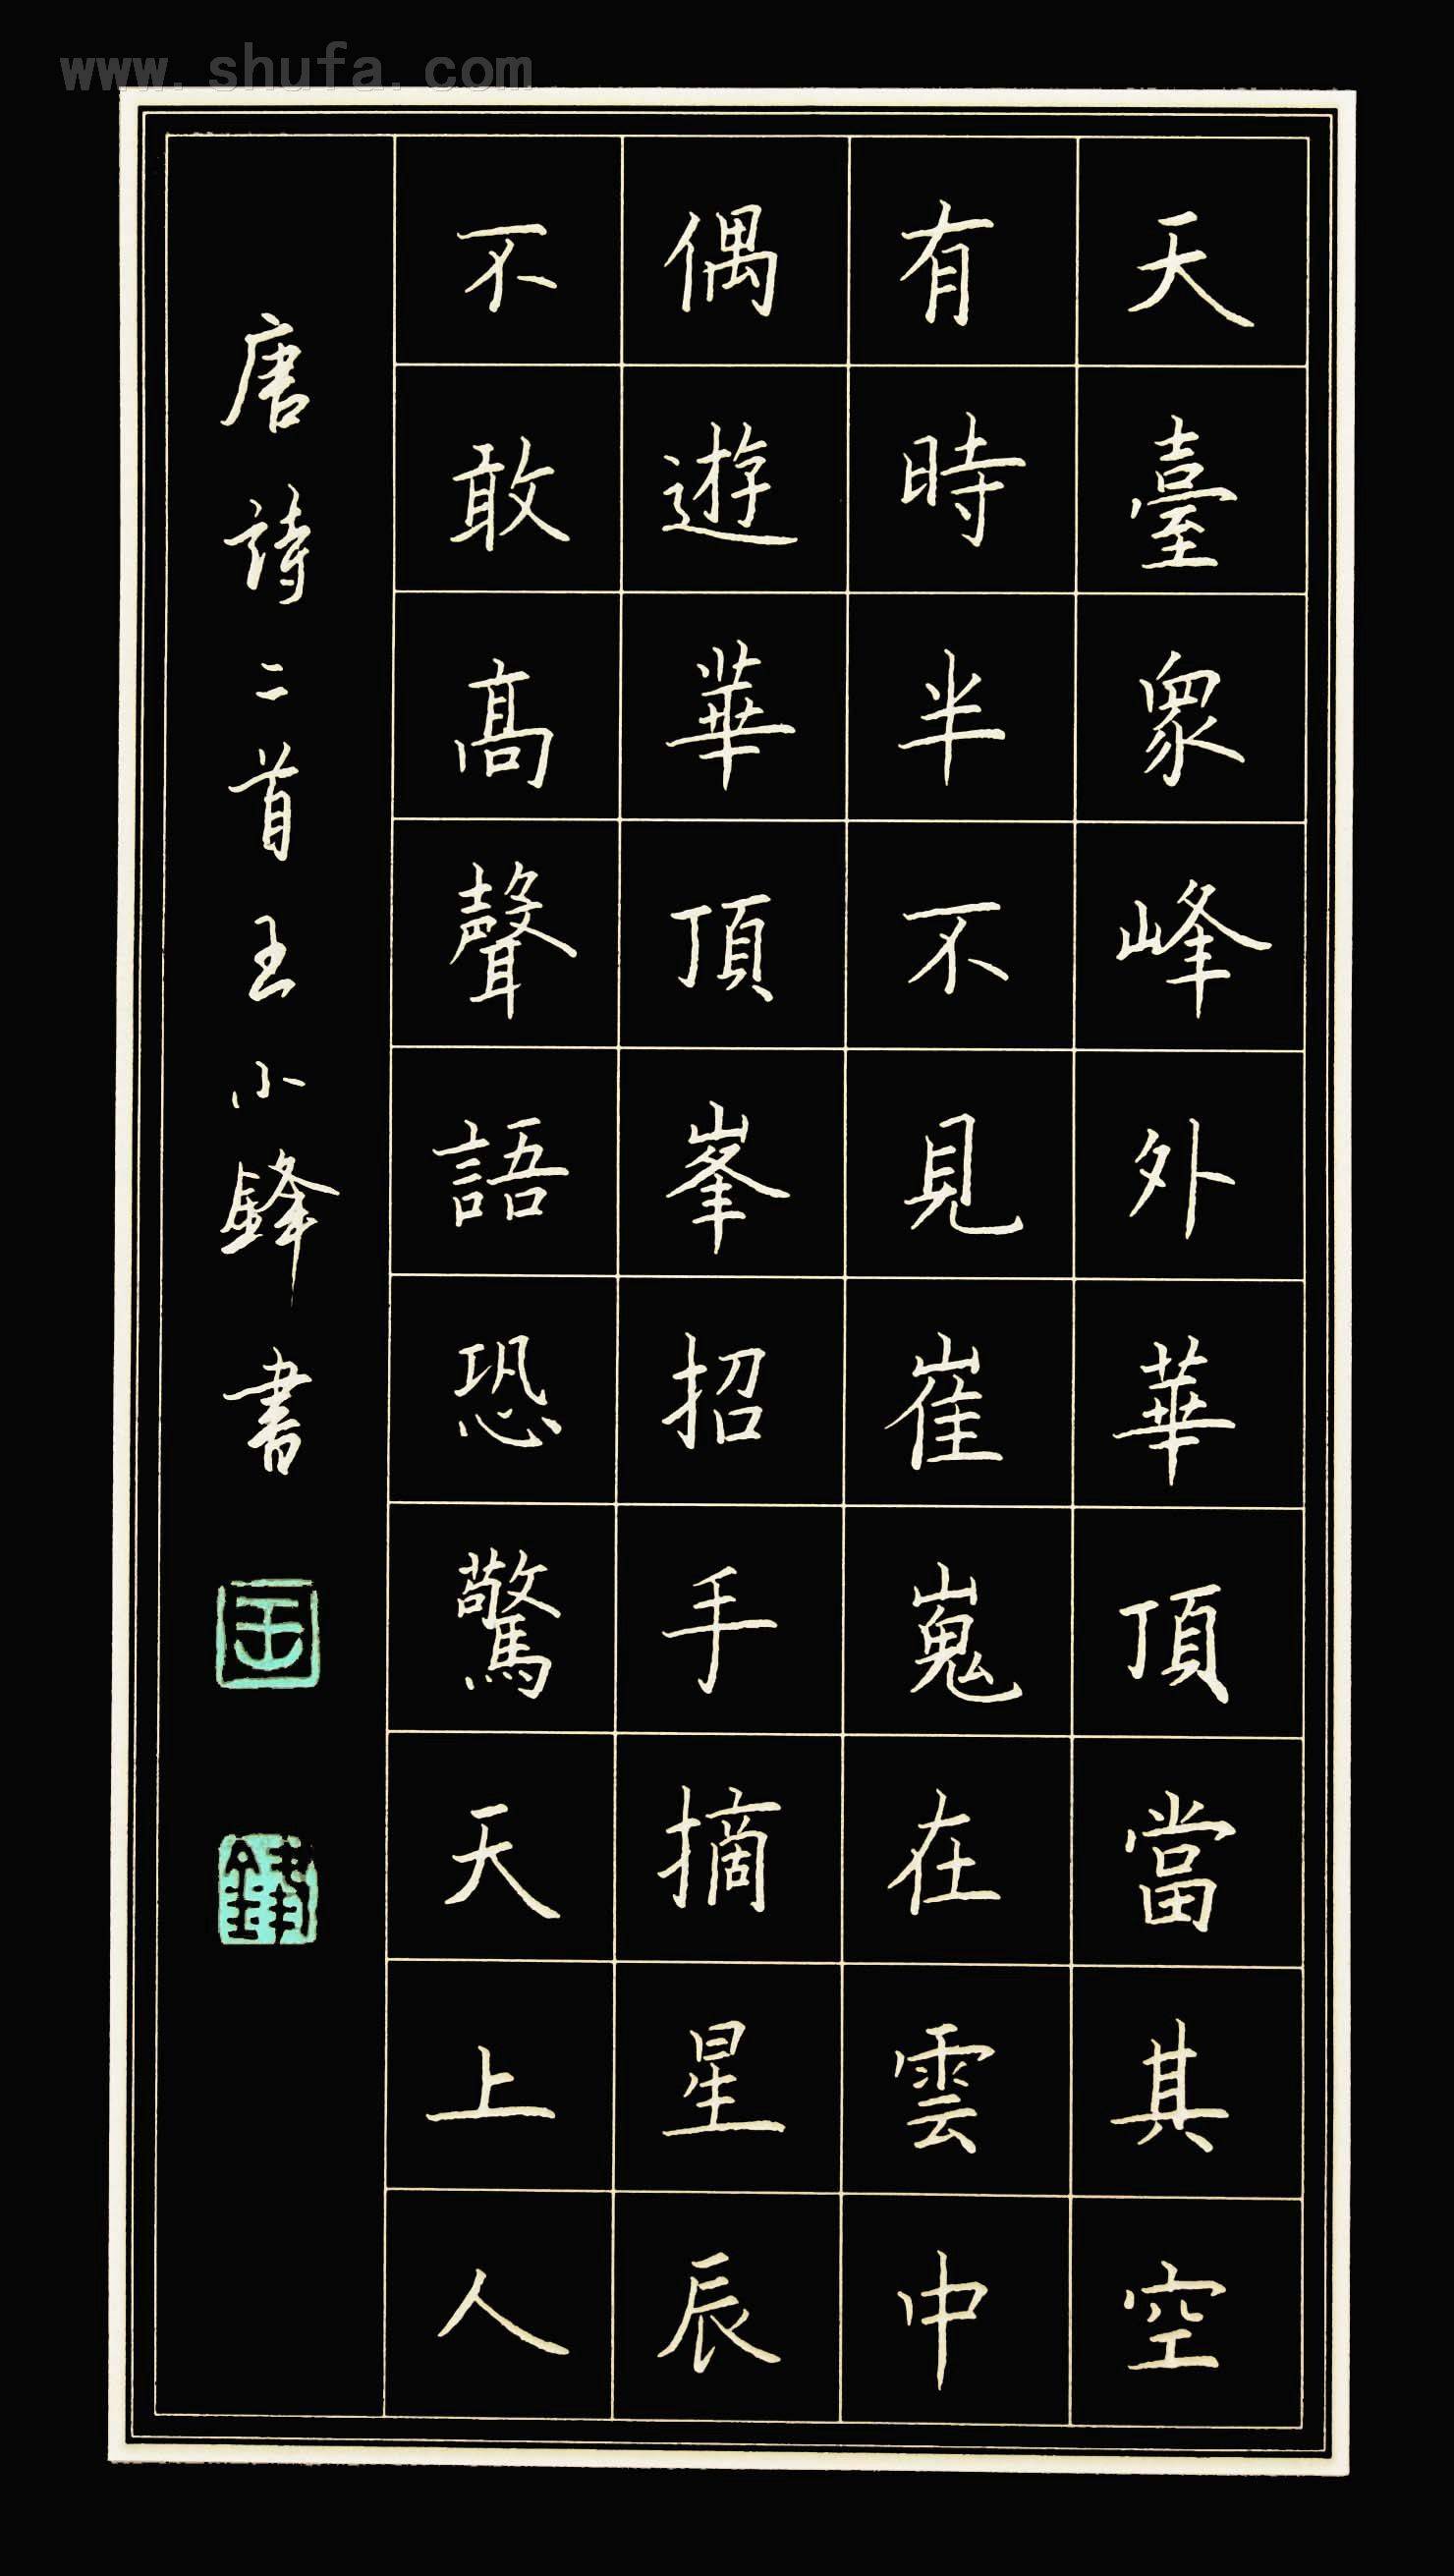 www.shufa.com
天臺眾峰外華頂當其空
有時半不見崔嵬在雲中
偶遊華頂峯招手摘星辰
不敢高聲語恐驚天上人
唐詩二首王小鋒書
王